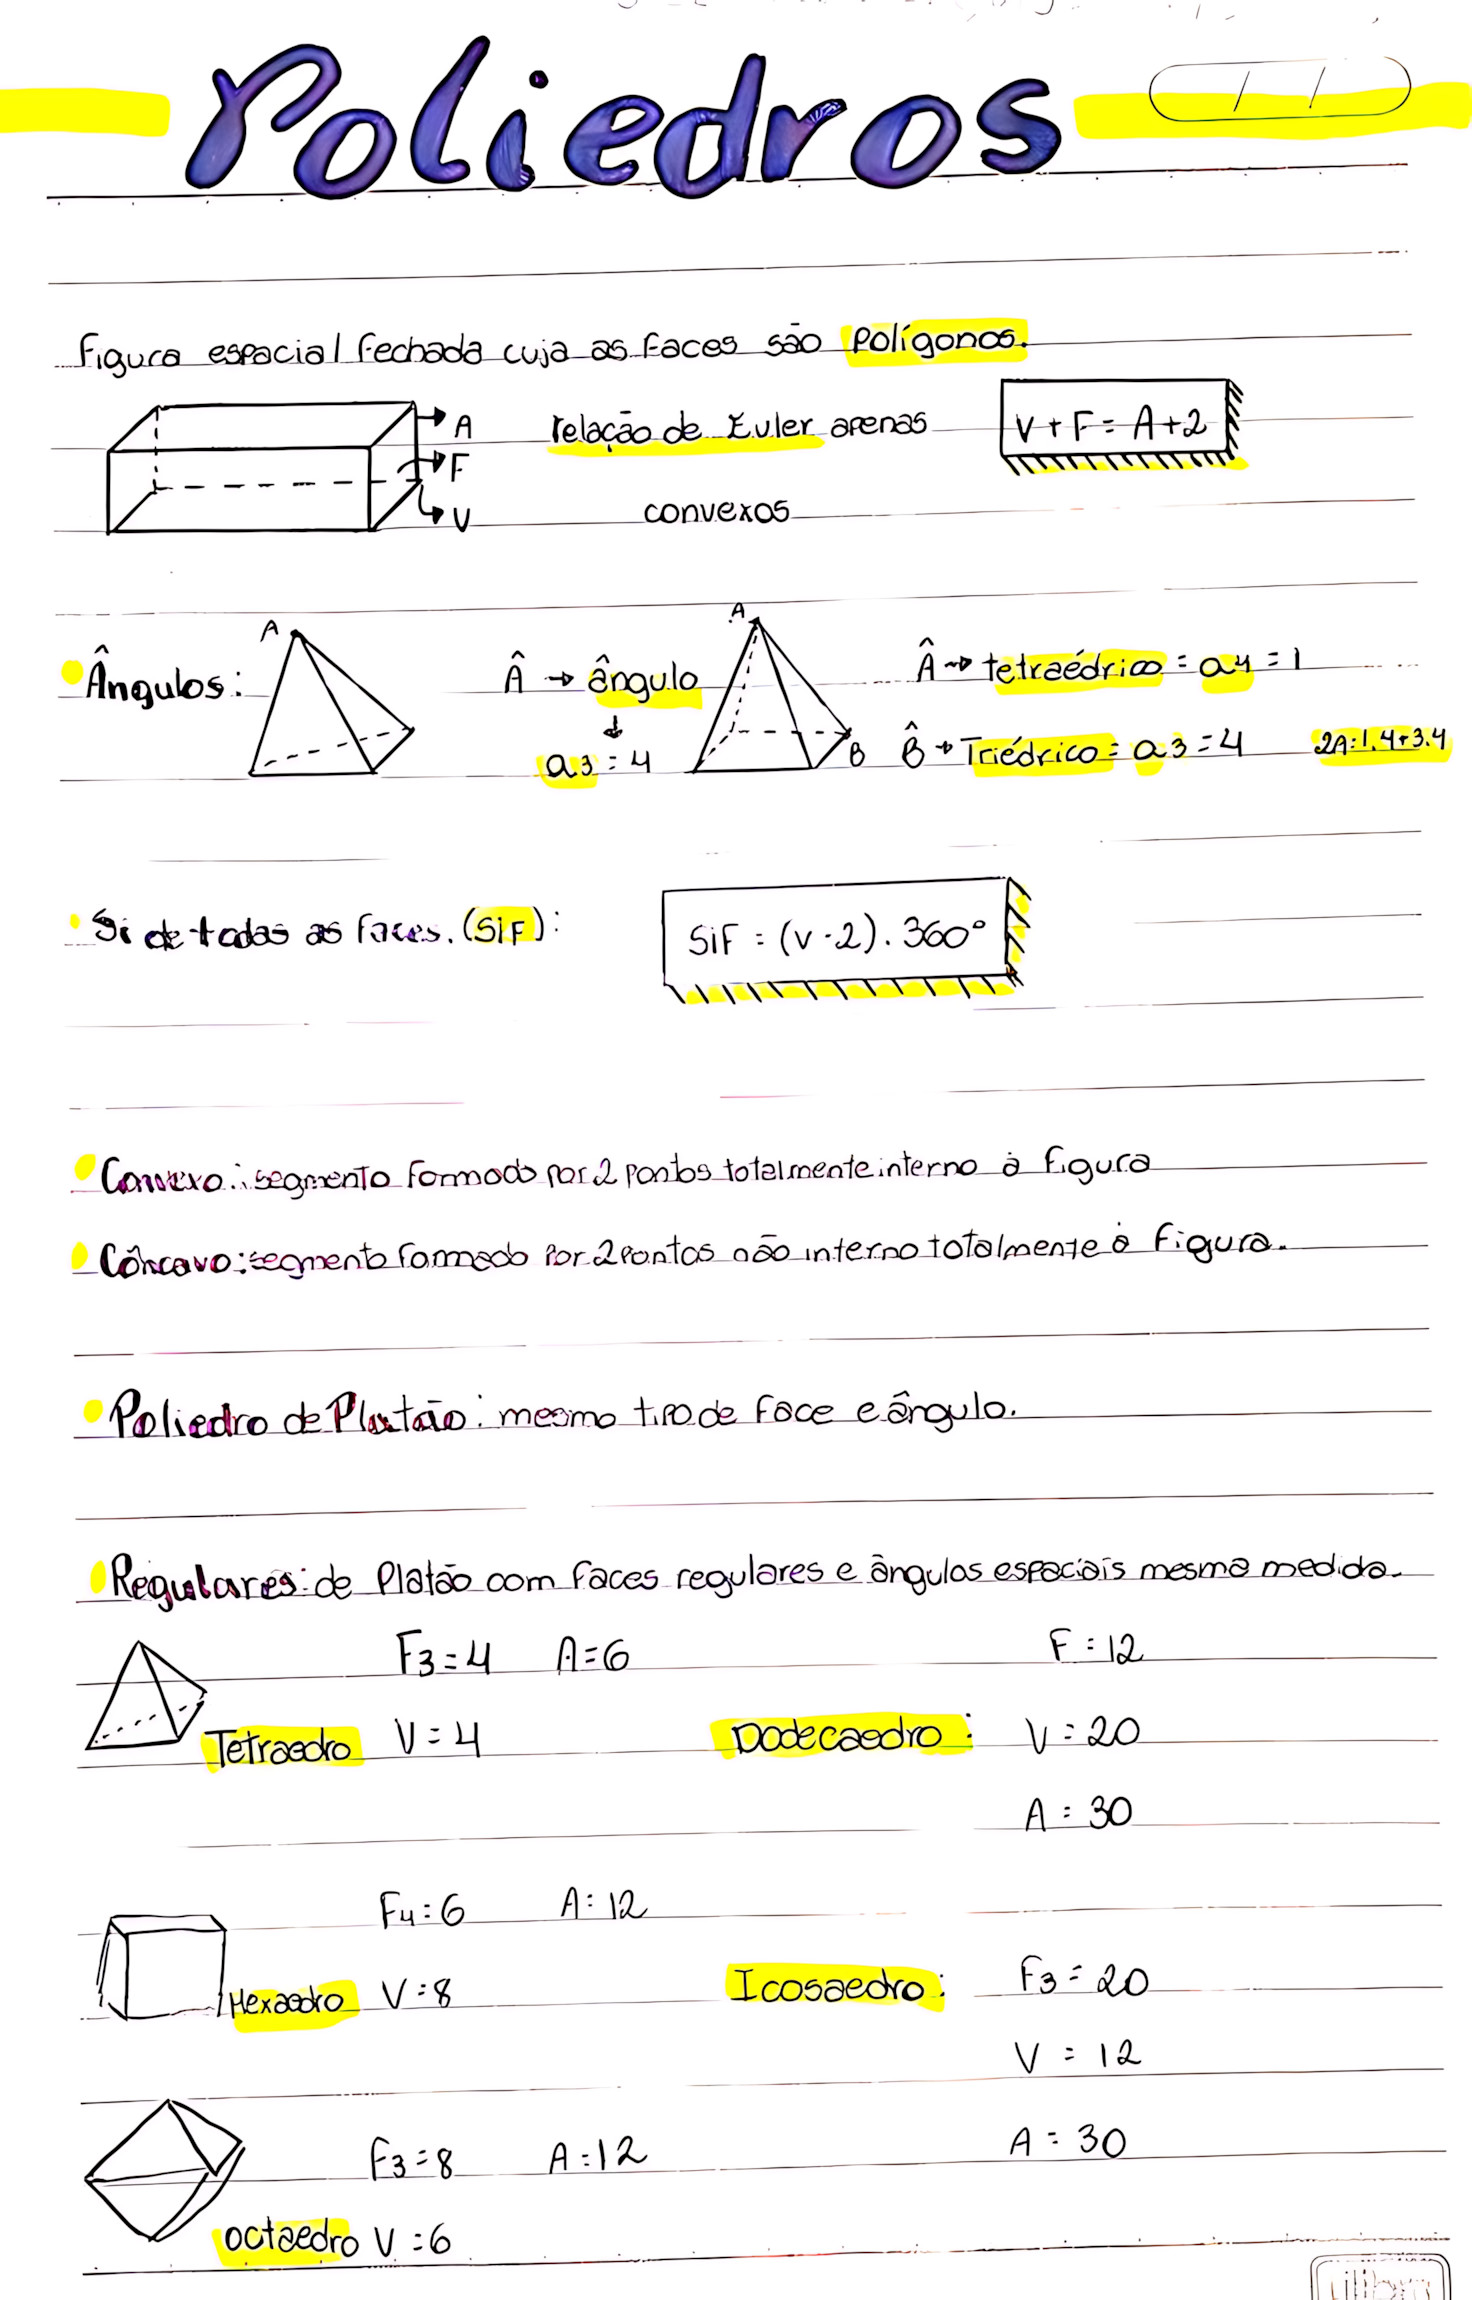 Poliedros
/ /
Figura espacial fechada cuja as faces são Polígonos.
A
F
V
relação de Euler apenas
convexos
V + F = A + 2
Ângulos:
A
Â → ângulo
a3 = 4
A
B
Â → tetraédrico = a4 = 1
B̂ → Triédrico = a3 = 4
2A = 1.4 + 3.4
Si de todas as faces. (SiF):
SiF = (v - 2) . 360°
Convexo: segmento formado por 2 pontos totalmente interno à figura
Côncavo: segmento formado por 2 pontos não interno totalmente à figura.
Poliedro de Platão: mesmo tipo de face e ângulo.
Regulares: de Platão com faces regulares e ângulos espaciais mesma medida.
F3 = 4 A = 6
Tetraedro V = 4
F = 12
Dodecaedro: V = 20
A = 30
F4 = 6 A = 12
Hexaedro V = 8
Icosaedro: F3 = 20
V = 12
A = 30
F3 = 8 A = 12
octaedro V = 6